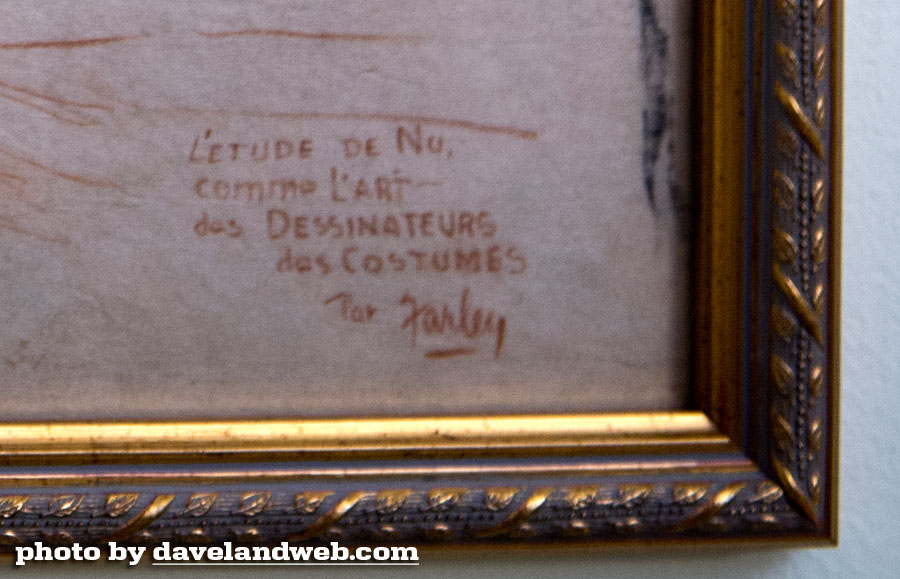 L'ETUDE DE NU,
comme L'ART—
des DESSINATEURS
des COSTUMES
Par Farley
photo by davelandweb.com